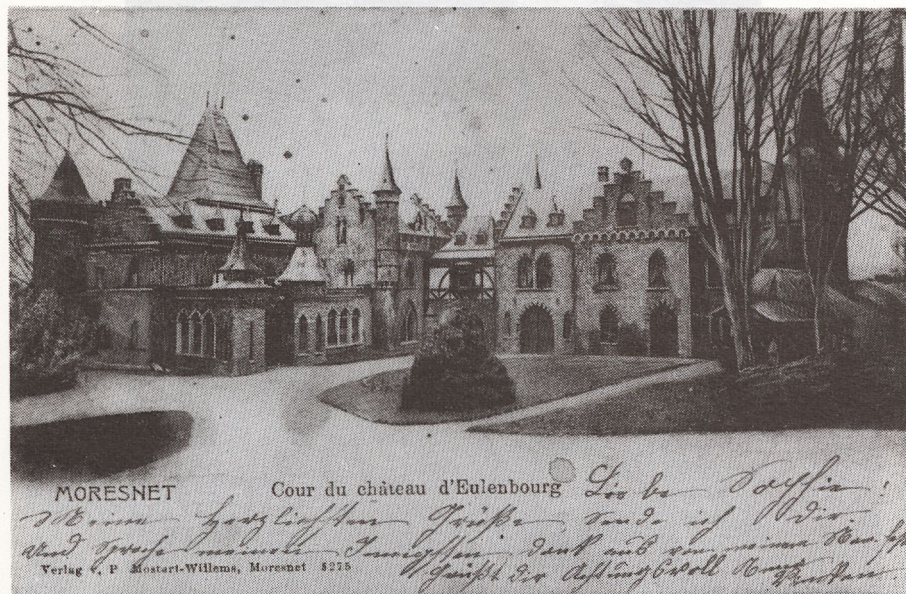 MORESNET
Cour du château d'Eulenbourg
Liebe Sophie!
Meine herzlichsten Grüße sende ich Dir
und spreche meinen Innigsten dank aus von meinen
grüßt dir Achtungsvoll
Verlag v. P Mostert-Willems, Moresnet 5275